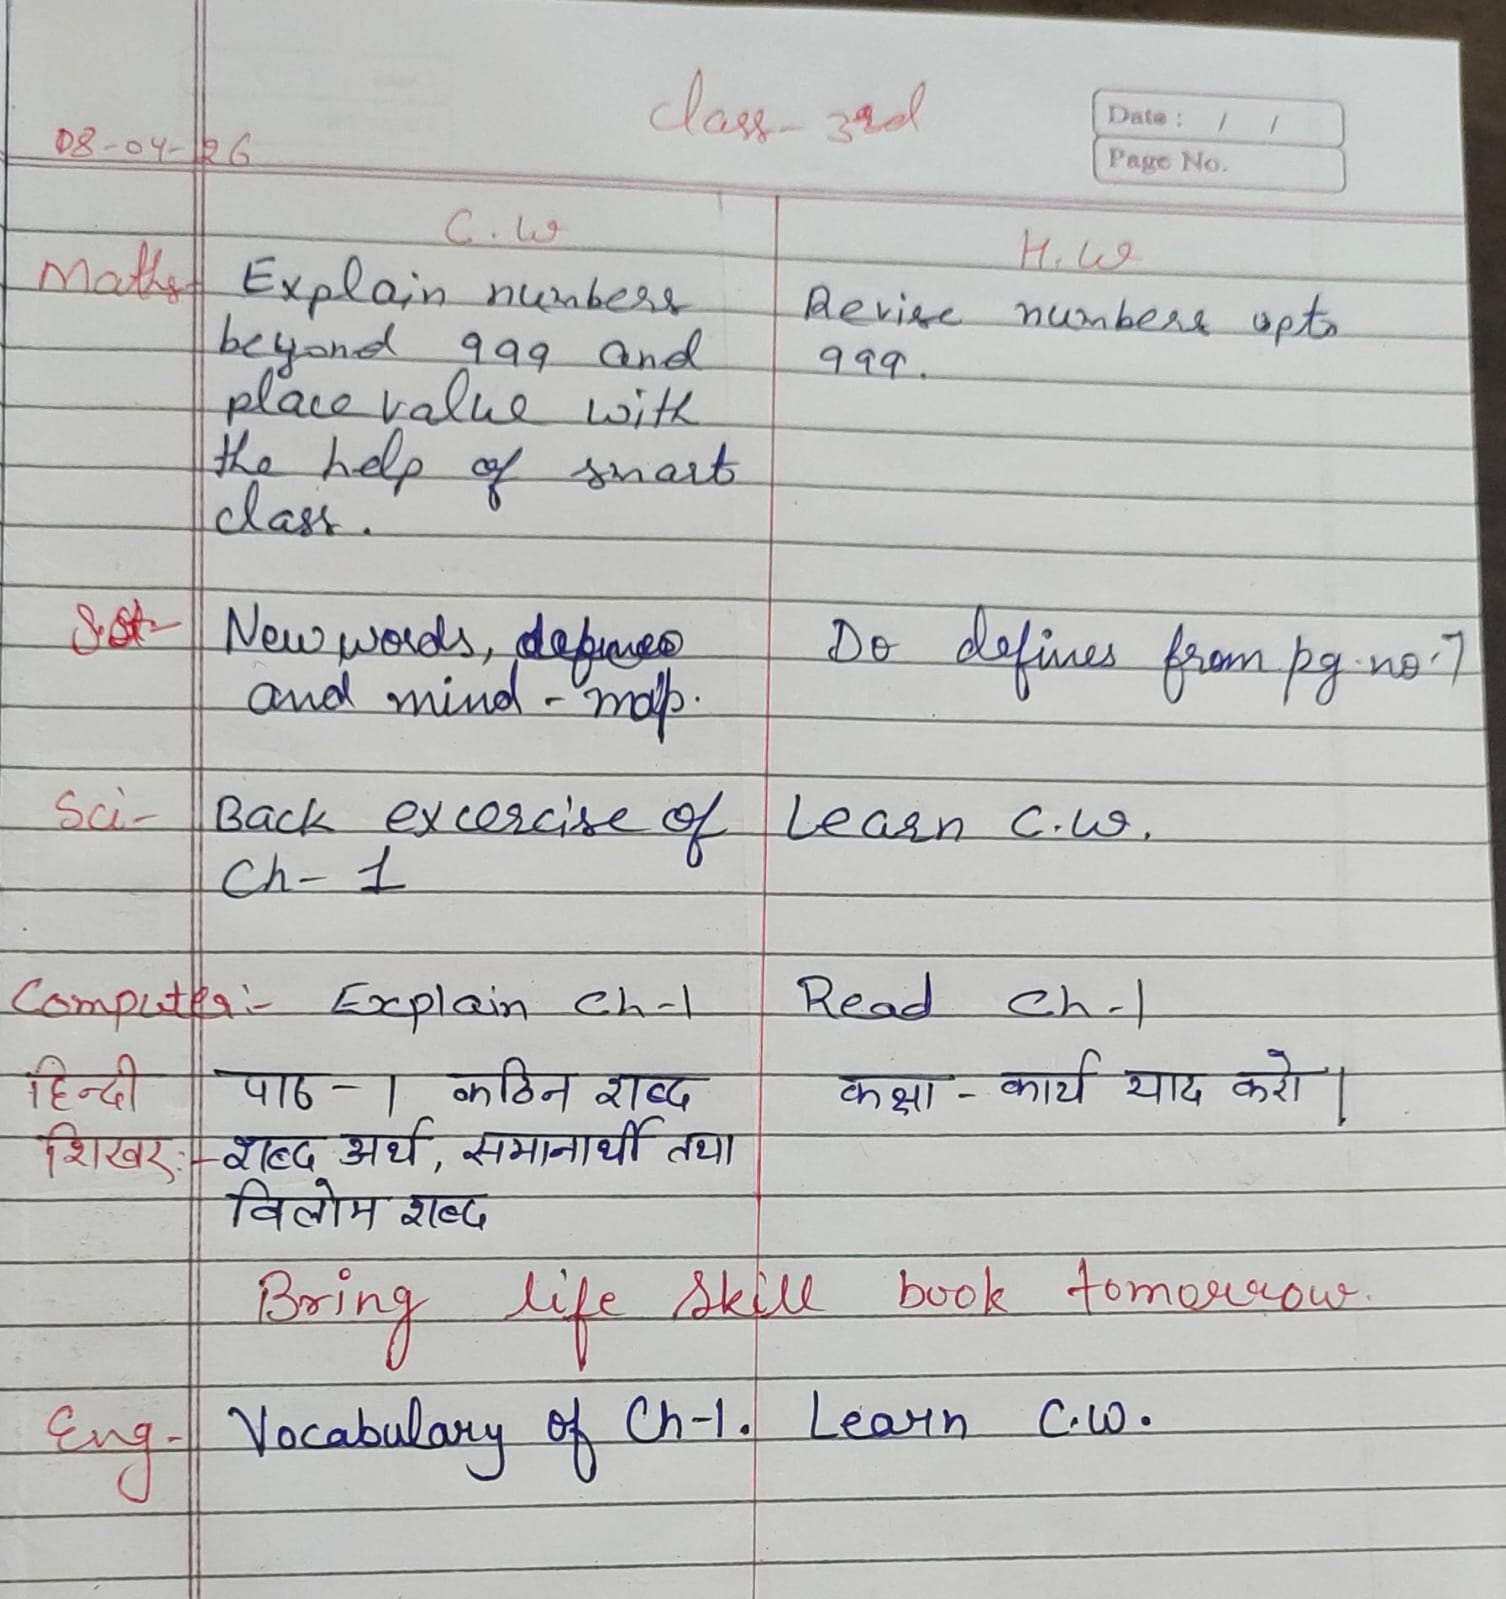 class-3rd
Date : / /
Page No.
08-04-26
C.W
H.W
Maths- Explain numbers Revise numbers upto
beyond 999 and 999.
place value with
the help of smart
class.
S.St- New words, defines Do defines from pg.no.7
and mind-map.
Sci- Back excercise of Learn C.W.
Ch-1
Computer:- Explain Ch-1 Read Ch-1
हिन्दी पाठ-1 कठिन शब्द कक्षा-कार्य याद करो।
शिखर:- शब्द अर्थ, समानार्थी तथा
विलोम शब्द
Bring life skill book tomorrow.
Eng- Vocabulary of Ch-1. Learn C.W.